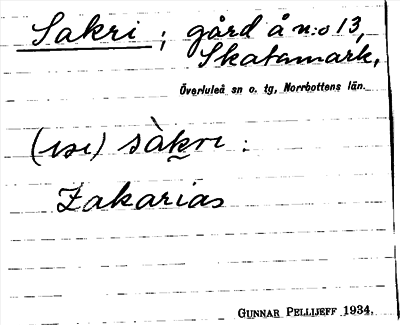 Sakri ; gård å n:o 13,
Skatamark,
Överluleå sn o. tg, Norrbottens län.
sàkrı :
Zakarias
GUNNAR PELLIJEFF 1934.